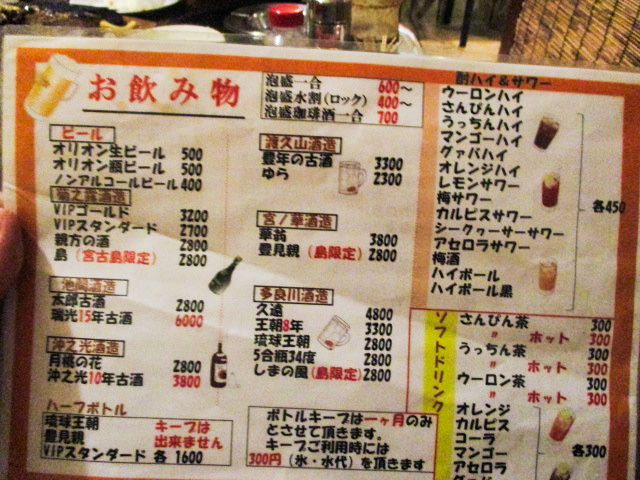 お飲み物
泡盛一合 600～
泡盛水割(ロック) 400～
泡盛珈琲酒一合 700
ビール
オリオン生ビール 500
オリオン瓶ビール 500
ノンアルコールビール 400
菊之露酒造
VIPゴールド 3200
VIPスタンダード 2700
親方の酒 2800
島（宮古島限定） 2800
池間酒造
太郎古酒 2800
瑞光15年古酒 6000
沖之光酒造
月桃の花 2800
沖之光10年古酒 3800
ハーフボトル
琉球王朝
豊見親
VIPスタンダード 各 1600
キープは
出来ません
渡久山酒造
豊年の古酒 3300
ゆら 2300
宮ノ華酒造
華翁 3800
豊見親（島限定） 2800
多良川酒造
久遠 4800
王朝8年 3300
琉球王朝 2800
5合瓶34度 2800
しまの風（島限定） 2800
ボトルキープは一ヶ月のみ
とさせて頂きます。
キープご利用時には
300円（氷・水代）を頂きます
酎ハイ＆サワー
ウーロンハイ
さんぴんハイ
うっちんハイ
マンゴーハイ
グァバハイ
オレンジハイ
レモンサワー
梅サワー
カルピスサワー
シークヮーサーサワー
アセロラサワー
梅酒
ハイボール
ハイボール黒
各450
ソフトドリンク
さんぴん茶 300
〃 ホット 300
うっちん茶 300
〃 ホット 300
ウーロン茶 300
〃 ホット 300
オレンジ
カルピス
コーラ
マンゴー
アセロラ
各300